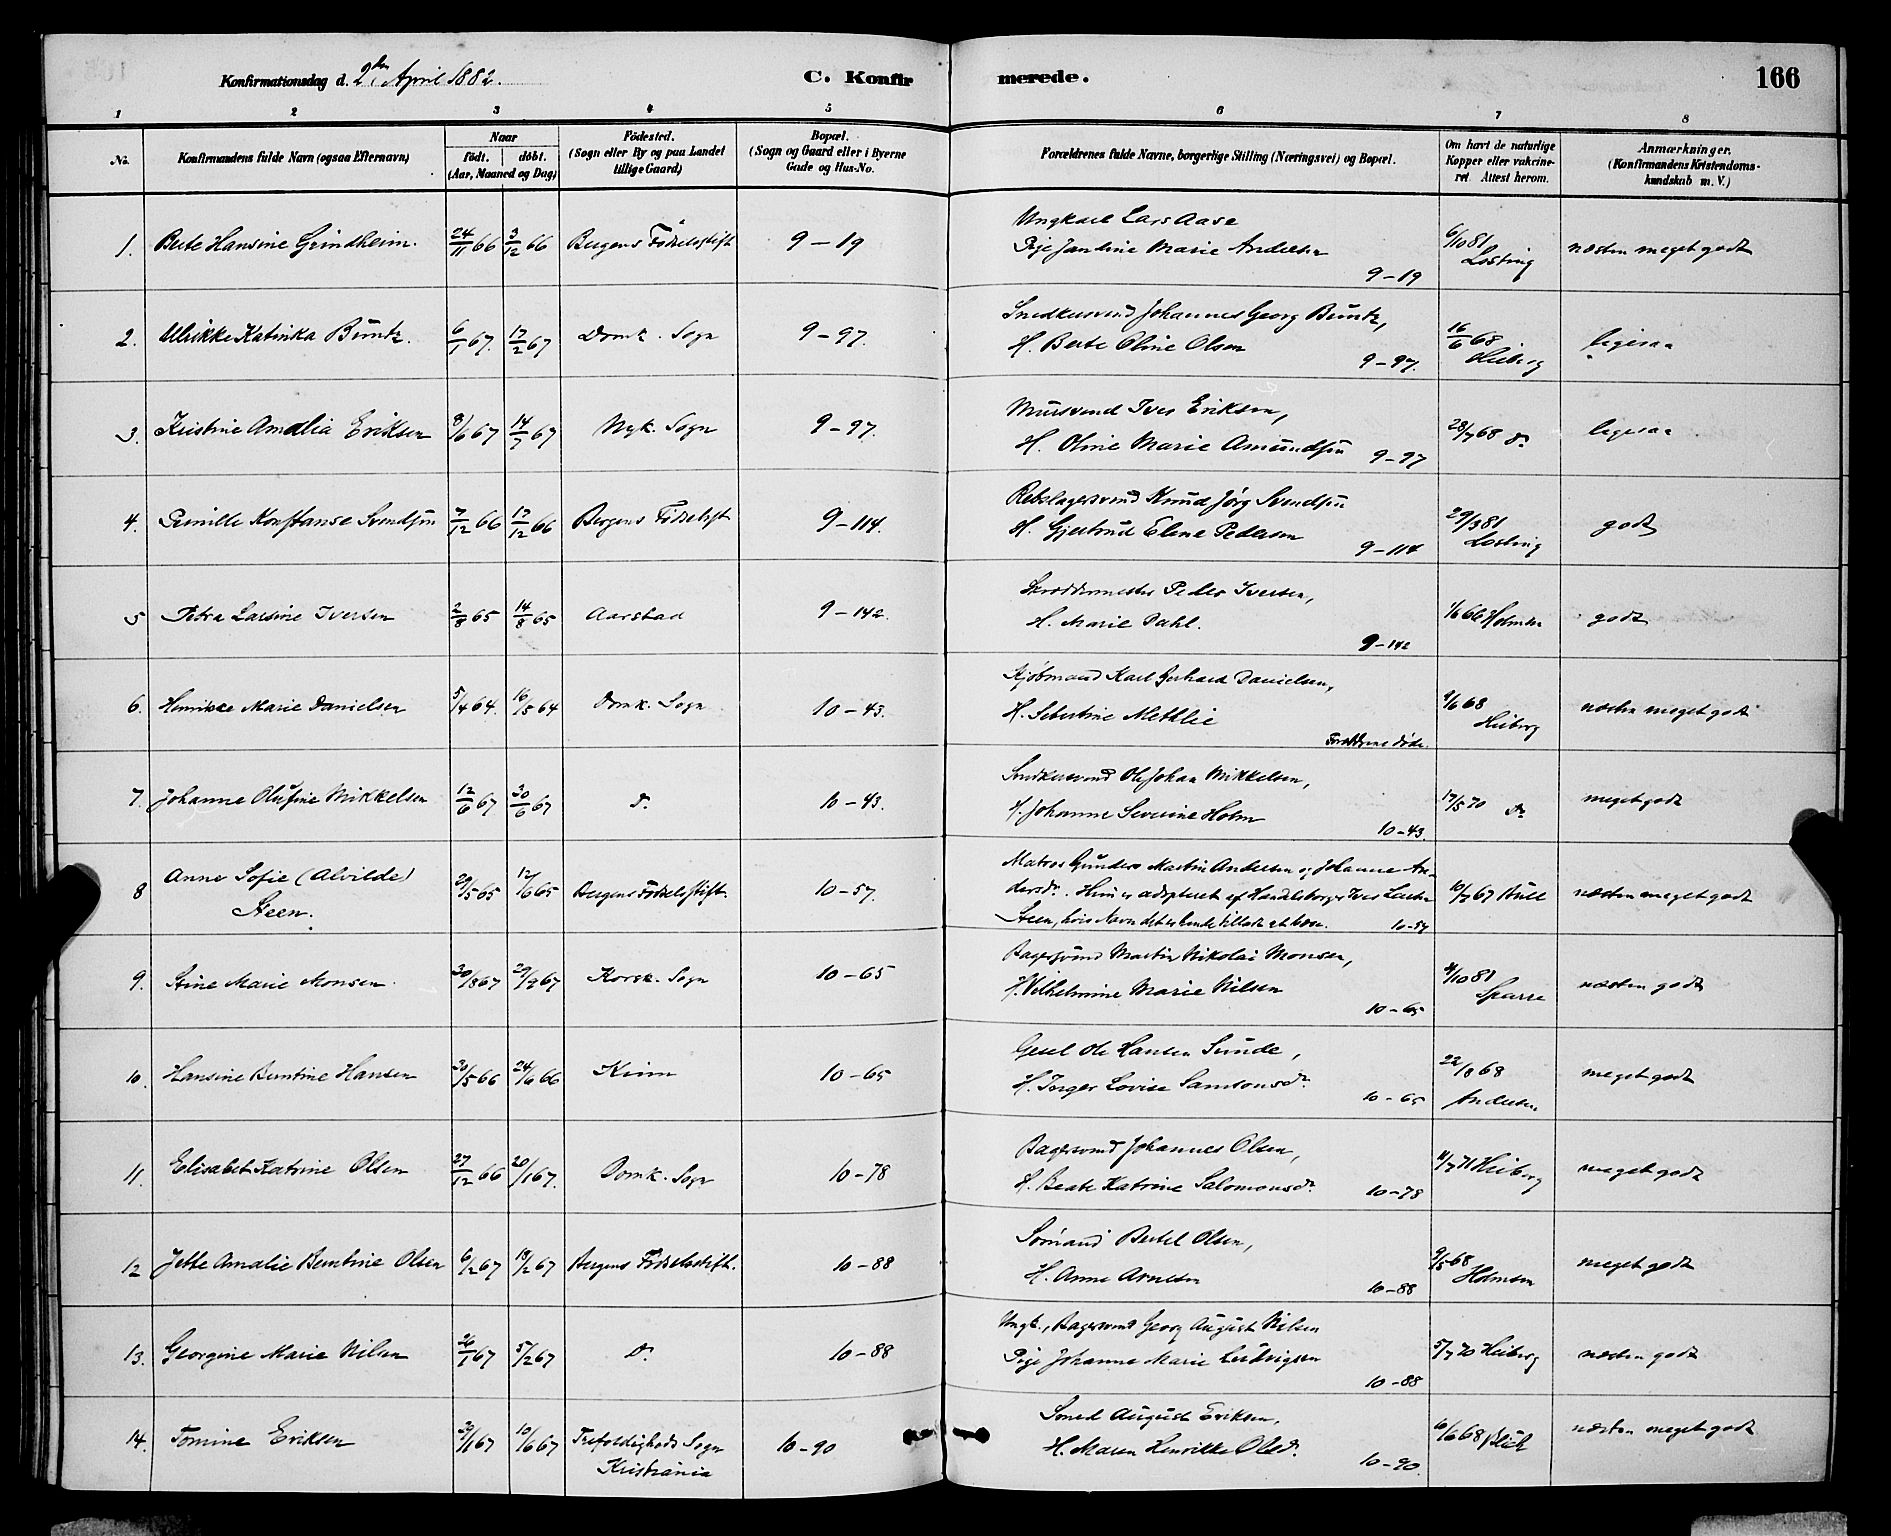 Konfirmationsdag d. 2den April 1882.
C. Konfirmerede.
166
1 2 3 4 5 6 7 8
No.
Konfirmandens fulde Navn (ogsaa Efternavn)
Naar
födt. döbt.
(Aar, Maaned og Dag)
Födested.
(Sogn eller By og paa Landet
tillige Gaard)
Bopæl.
(Sogn og Gaard eller i Byerne
Gade og Hus-No.
Forældrenes fulde Navne, borgerlige Stilling (Næringsvei) og Bopæl.
Om havt de naturlige
Kopper eller vakcine-
ret Attest herom.
Anmærkninger.
(Konfirmandens Kristendoms-
kundskab m. V.)
Ungkarl Lars Aase
1. Berte Hansine Grindheim. 24/11 66 3/12 66 Bergens Födselsstift 9-19 Pige Jantine Marie Andersen 9-19 6/10 81 Losting næsten meget godt
Snedkersvend Johannes Georg Büntz,
2. Ulrikke Katinka Büntz. 6/1 67. 17/2 67 Domk. Sogn 9-97. H. Berte Oline Olsen 9-97. 16/6 68 Heiberg ligesaa
Mursvend Iver Eriksen,
3. Kristine Amalia Eriksen 8/6 67 14/7 67 Nyk. Sogn 9-97. H. Oline Marie Amundsen 9-97 28/7 68 Do ligesaa
Rebslagersvend Knud Jörg Svendsen
4. Pernille Konstanse Svendsen 7/12 66 17/12 66 Bergens Födselsst 9-114. H. Gjertrud Elene Pedersen 9-114 29/3 81 Losting godt
Skræddermester Peder Iversen,
5 Petra Larsine Iversen 2/8 65 14/8 65 Aarstad 9-142. H. Marie Dahl. 9-142 1/6 66 Holmsen godt
Kjöbmand Karl Gerhard Danielsen,
6. Henrikke Marie Danielsen 5/4 64. 16/5 64 Domk. Sogn 10-43. H. Sebertine Methlie Forældrene döde. 9/6 68 Heiberg næsten meget godt
Snedkersvend Ole Johan Mikkelsen,
7. Johanne Olufine Mikkelsen 12/6 67 30/6 67 Do 10-43. H. Johanne Severine Holm 10-43. 17/5 70 Do meget godt
Matros Gunder Martin Andersen og Johanne An-
8 Anne Sofie (Alvilde) 29/5 65 12/6 65 Bergens Födselsstift. 10-57. dersdr. Hun er adopteret af Handelsborger Iver Larsen 10/7 67 Bull næsten meget godt
Steen. Steen, hvis Navn det er hende tilladt at bære. 10-57
Bagersvend Martin Nikolai Monsen,
9. Stine Marie Monsen. 30/8 67 29/9 67 Korsk. Sogn 10-65 H. Vilhelmine Marie Nilsen 10-65 4/10 81 Sparre næsten godt
Gesel Ole Hansen Sunde,
10. Hansine Berntine Hansen 30/5 66 24/6 66 Kinn 10-65 H. Inger Lovise Samsonsdr. 10-65 22/8 68 Andersen meget godt
Bagersvend Johannes Olsen,
11. Elisabet Katrine Olsen 27/12 66 20/1 67. Domk. Sogn 10-78 H. Beate Katrine Salomonsdr. 10-78 11/7 71 Heiberg meget godt
Sömand Bertel Olsen,
12 Jette Amalie Berntine Olsen 6/2 67 18/2 67 Bergens Födselsstift. 10-88 H. Anne Arnesen 10-88 9/5 68 Holmsen meget godt
Ungk., Bagersvend Georg August Nilsen
13. Georgine Marie Nilsen 26/1 67 5/2 67 Do 10-88 Pige Johanne Marie Ludvigsen 10-88 5/7 70 Heiberg næsten godt
Smed August Eriksen,
14. Tomine Eriksen 30/1 67 10/6 67 Trefoldigheds Sogn 10-90 H. Maren Henrikke Olsdr. 10-90. 6/6 68 Blich næsten meget godt
Kristiania